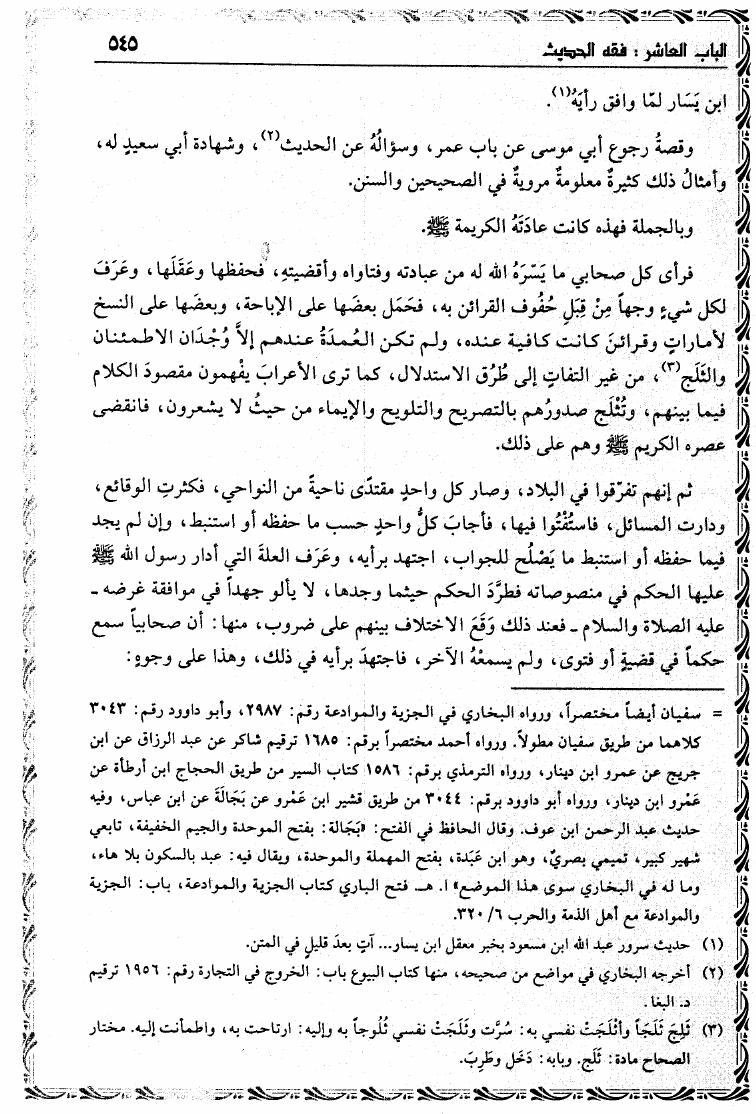 الباب العاشر : فقه الحديث
٥٤٥
ابن يَسَار لمّا وافق رأيَهُ(١).
وقصةُ رجوع أبي موسى عن باب عمر، وسؤالُهُ عن الحديث(٢)، وشهادة أبي سعيدٍ له،
وأمثالُ ذلك كثيرةٌ معلومةٌ مرويةٌ في الصحيحين والسنن.
وبالجملة فهذه كانت عادَتَهُ الكريمة ﷺ.
فرأى كل صحابي ما يَسّرَهُ الله له من عبادته وفتاواه وأقضيتهِ، فحفظها وعَقَلَها، وعَرَفَ
لكل شيءٍ وجهاً مِنْ قِبَلِ حُفُوف القرائن به، فحَمَل بعضَها على الإباحة، وبعضَها على النسخ
لأماراتٍ وقرائنَ كانت كافية عنده، ولم تكن العُمدَةُ عندهم إلاَّ وُجْدَان الاطمئنان
والثَلَج(٣)، من غير التفاتٍ إلى طُرُق الاستدلال، كما ترى الأعرابَ يفْهمون مقصودَ الكلام
فيما بينهم، وتُثْلَج صدورُهم بالتصريح والتلويح والإيماء من حيثُ لا يشعرون، فانقضى
عصره الكريم ﷺ وهم على ذلك.
ثم إنهم تفرّقوا في البلاد، وصار كل واحدٍ مقتدًى ناحيةً من النواحي، فكثرتِ الوقائع،
ودارت المسائل، فاستُفْتُوا فيها، فأجابَ كلُّ واحدٍ حسب ما حفظه أو استنبط، وإن لم يجد
فيما حفظه أو استنبط ما يَصْلُح للجواب، اجتهد برأيه، وعَرَف العلةَ التي أدار رسول الله ﷺ
عليها الحكم في منصوصاته فطرَّدَ الحكم حيثما وجدها، لا يألو جهداً في موافقة غرضه ـ
عليه الصلاة والسلام ـ فعند ذلك وَقَعَ الاختلاف بينهم على ضروب، منها: أن صحابياً سمع
حكماً في قضيةٍ أو فتوى، ولم يسمعْهُ الآخر، فاجتهدَ برأيه في ذلك، وهذا على وجوهٍ:
= سفيان أيضاً مختصراً، ورواه البخاري في الجزية والموادعة رقم: ٢٩٨٧، وأبو داوود رقم: ٣٠٤٣
كلاهما من طريق سفيان مطولاً. ورواه أحمد مختصراً برقم: ١٦٨٥ ترقيم شاكر عن عبد الرزاق عن ابن
جريج عن عمرو ابن دينار، ورواه الترمذي برقم: ١٥٨٦ كتاب السير من طريق الحجاج ابن أرطأة عن
عَمْرو ابن دينار، ورواه أبو داوود برقم: ٣٠٤٤ من طريق قشير ابن عَمْرو عن بَجَالَة عن ابن عباس، وفيه
حديث عبد الرحمن ابن عوف. وقال الحافظ في الفتح: «بَجَالة: بفتح الموحدة والجيم الخفيفة، تابعي
شهير كبير، تميمي بصريٌ، وهو ابن عَبَدة، بفتح المهملة والموحدة، ويقال فيه: عبد بالسكون بلا هاء،
وما له في البخاري سوى هذا الموضع» ا. هـ. فتح الباري كتاب الجزية والموادعة، باب: الجزية
والموادعة مع أهل الذمة والحرب ٦/ ٣٢٠.
(١) حديث سرور عبد الله ابن مسعود بخبر معقل ابن يسار... آتٍ بعدَ قليلٍ في المتن.
(٢) أخرجه البخاري في مواضع من صحيحه، منها كتاب البيوع باب: الخروج في التجارة رقم: ١٩٥٦ ترقيم
د. البغا.
(٣) ثَلِجَ ثَلَجَاً وأثْلَجَتْ نفسي به: سُرَّت وثَلَجَتْ نفسي ثُلُوجاً به وإليه: ارتاحت به، واطمأنت إليه. مختار
الصحاح مادة: ثَلَج. وبابه: دَخَل وطَرِبَ.